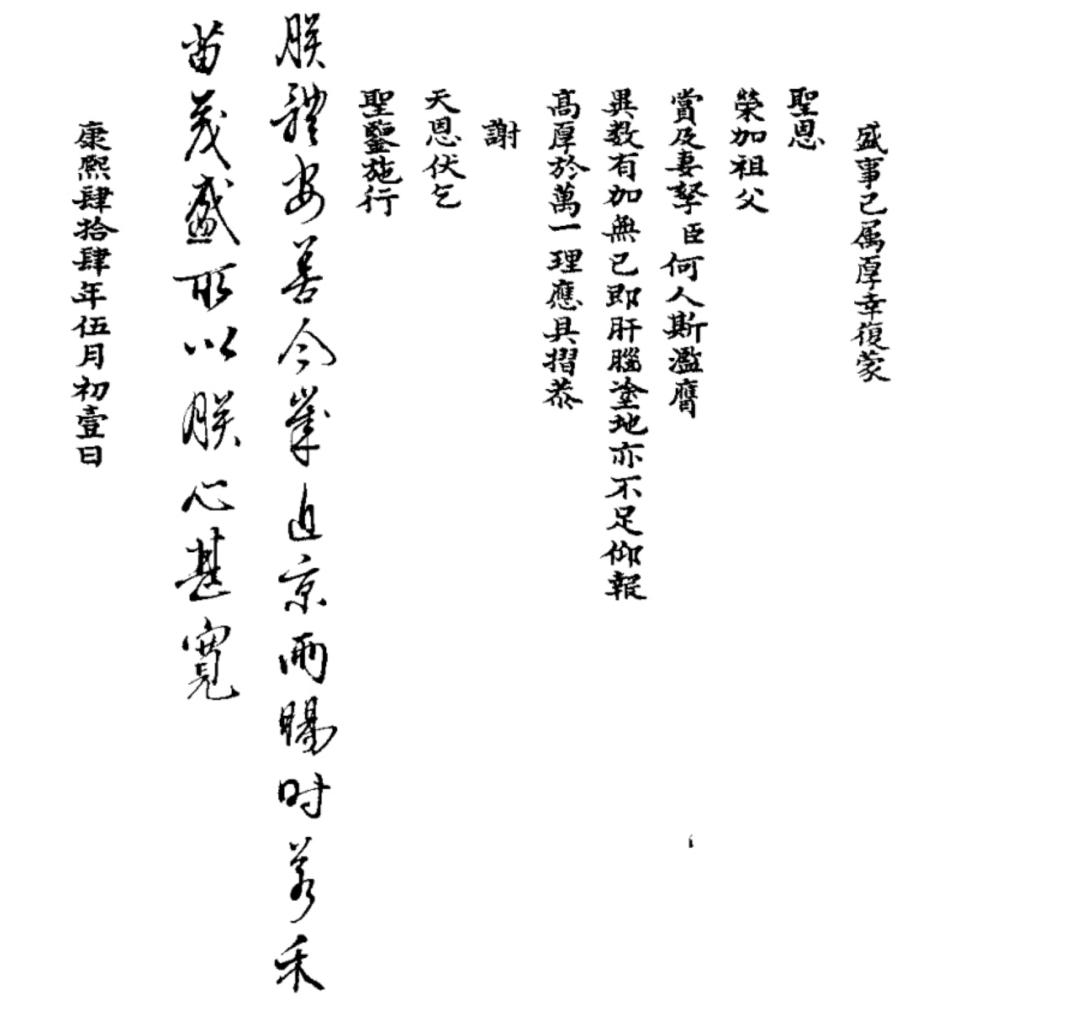 盛事已属厚幸復蒙
聖恩
榮加祖父
賞及妻孥臣何人斯濫膺
異数有加無已即肝腦塗地亦不足仰報
高厚於萬一理應具摺恭
謝
天恩伏乞
聖鑒施行
朕體安善今歲近京雨暘时若禾
苗茂盛所以朕心甚寬
康熙肆拾肆年伍月初壹日